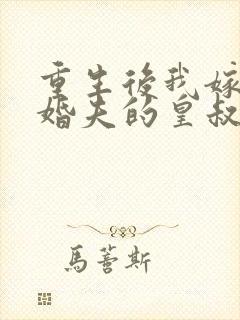 重生後我嫁
婚夫的皇叔
馬薈斯